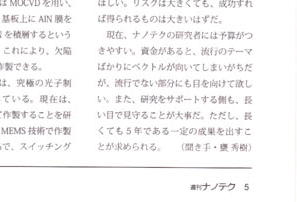 はMOCVDを用い、
基板上にAlN膜を
を積層するという
これにより、欠陥
作製できる。
は、究極の光子制
ている。現在は、
て作製することを研
MEMS技術で作製
で、スイッチング
ほしい。リスクは大きくても、成功すれ
ば得られるものは大きいはずだ。
現在、ナノテクの研究者には予算がつ
きやすい。資金があると、流行のテーマ
ばかりにベクトルが向いてしまいがちだ
が、流行でない部分にも目を向けて欲し
い。また、研究をサポートする側も、長
い目で見守ることが大事だ。ただし、長
くても5年である一定の成果を出すこ
とが求められる。 (聞き手・甕 秀樹)
週刊ナノテク 5